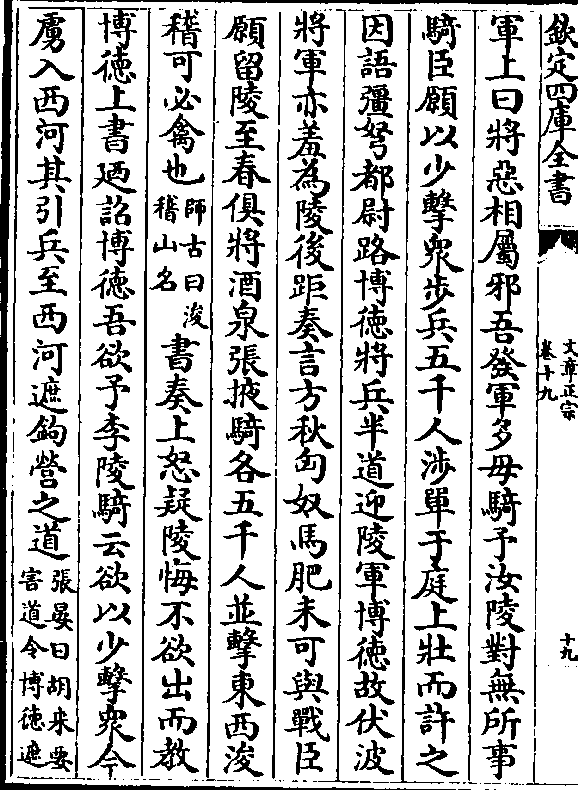 欽定四庫全書
文章正宗
卷十九
十九
軍上曰將惡相屬邪吾發軍多毋騎予汝陵對無所事
騎臣願以少擊衆步兵五千人涉單于庭上壯而許之
因語彊弩都尉路博徳將兵半道迎陵軍博徳故伏波
將軍亦羞為陵後距奏言方秋匈奴馬肥未可與戰臣
願留陵至春俱將酒泉張掖騎各五千人並擊東西浚
稽可必禽也師古曰浚稽山名書奏上怒疑陵悔不欲出而教
博徳上書廼詔博徳吾欲予李陵騎云欲以少擊衆今
虜入西河其引兵至西河遮鈎營之道張晏曰胡来要害道令博徳遮